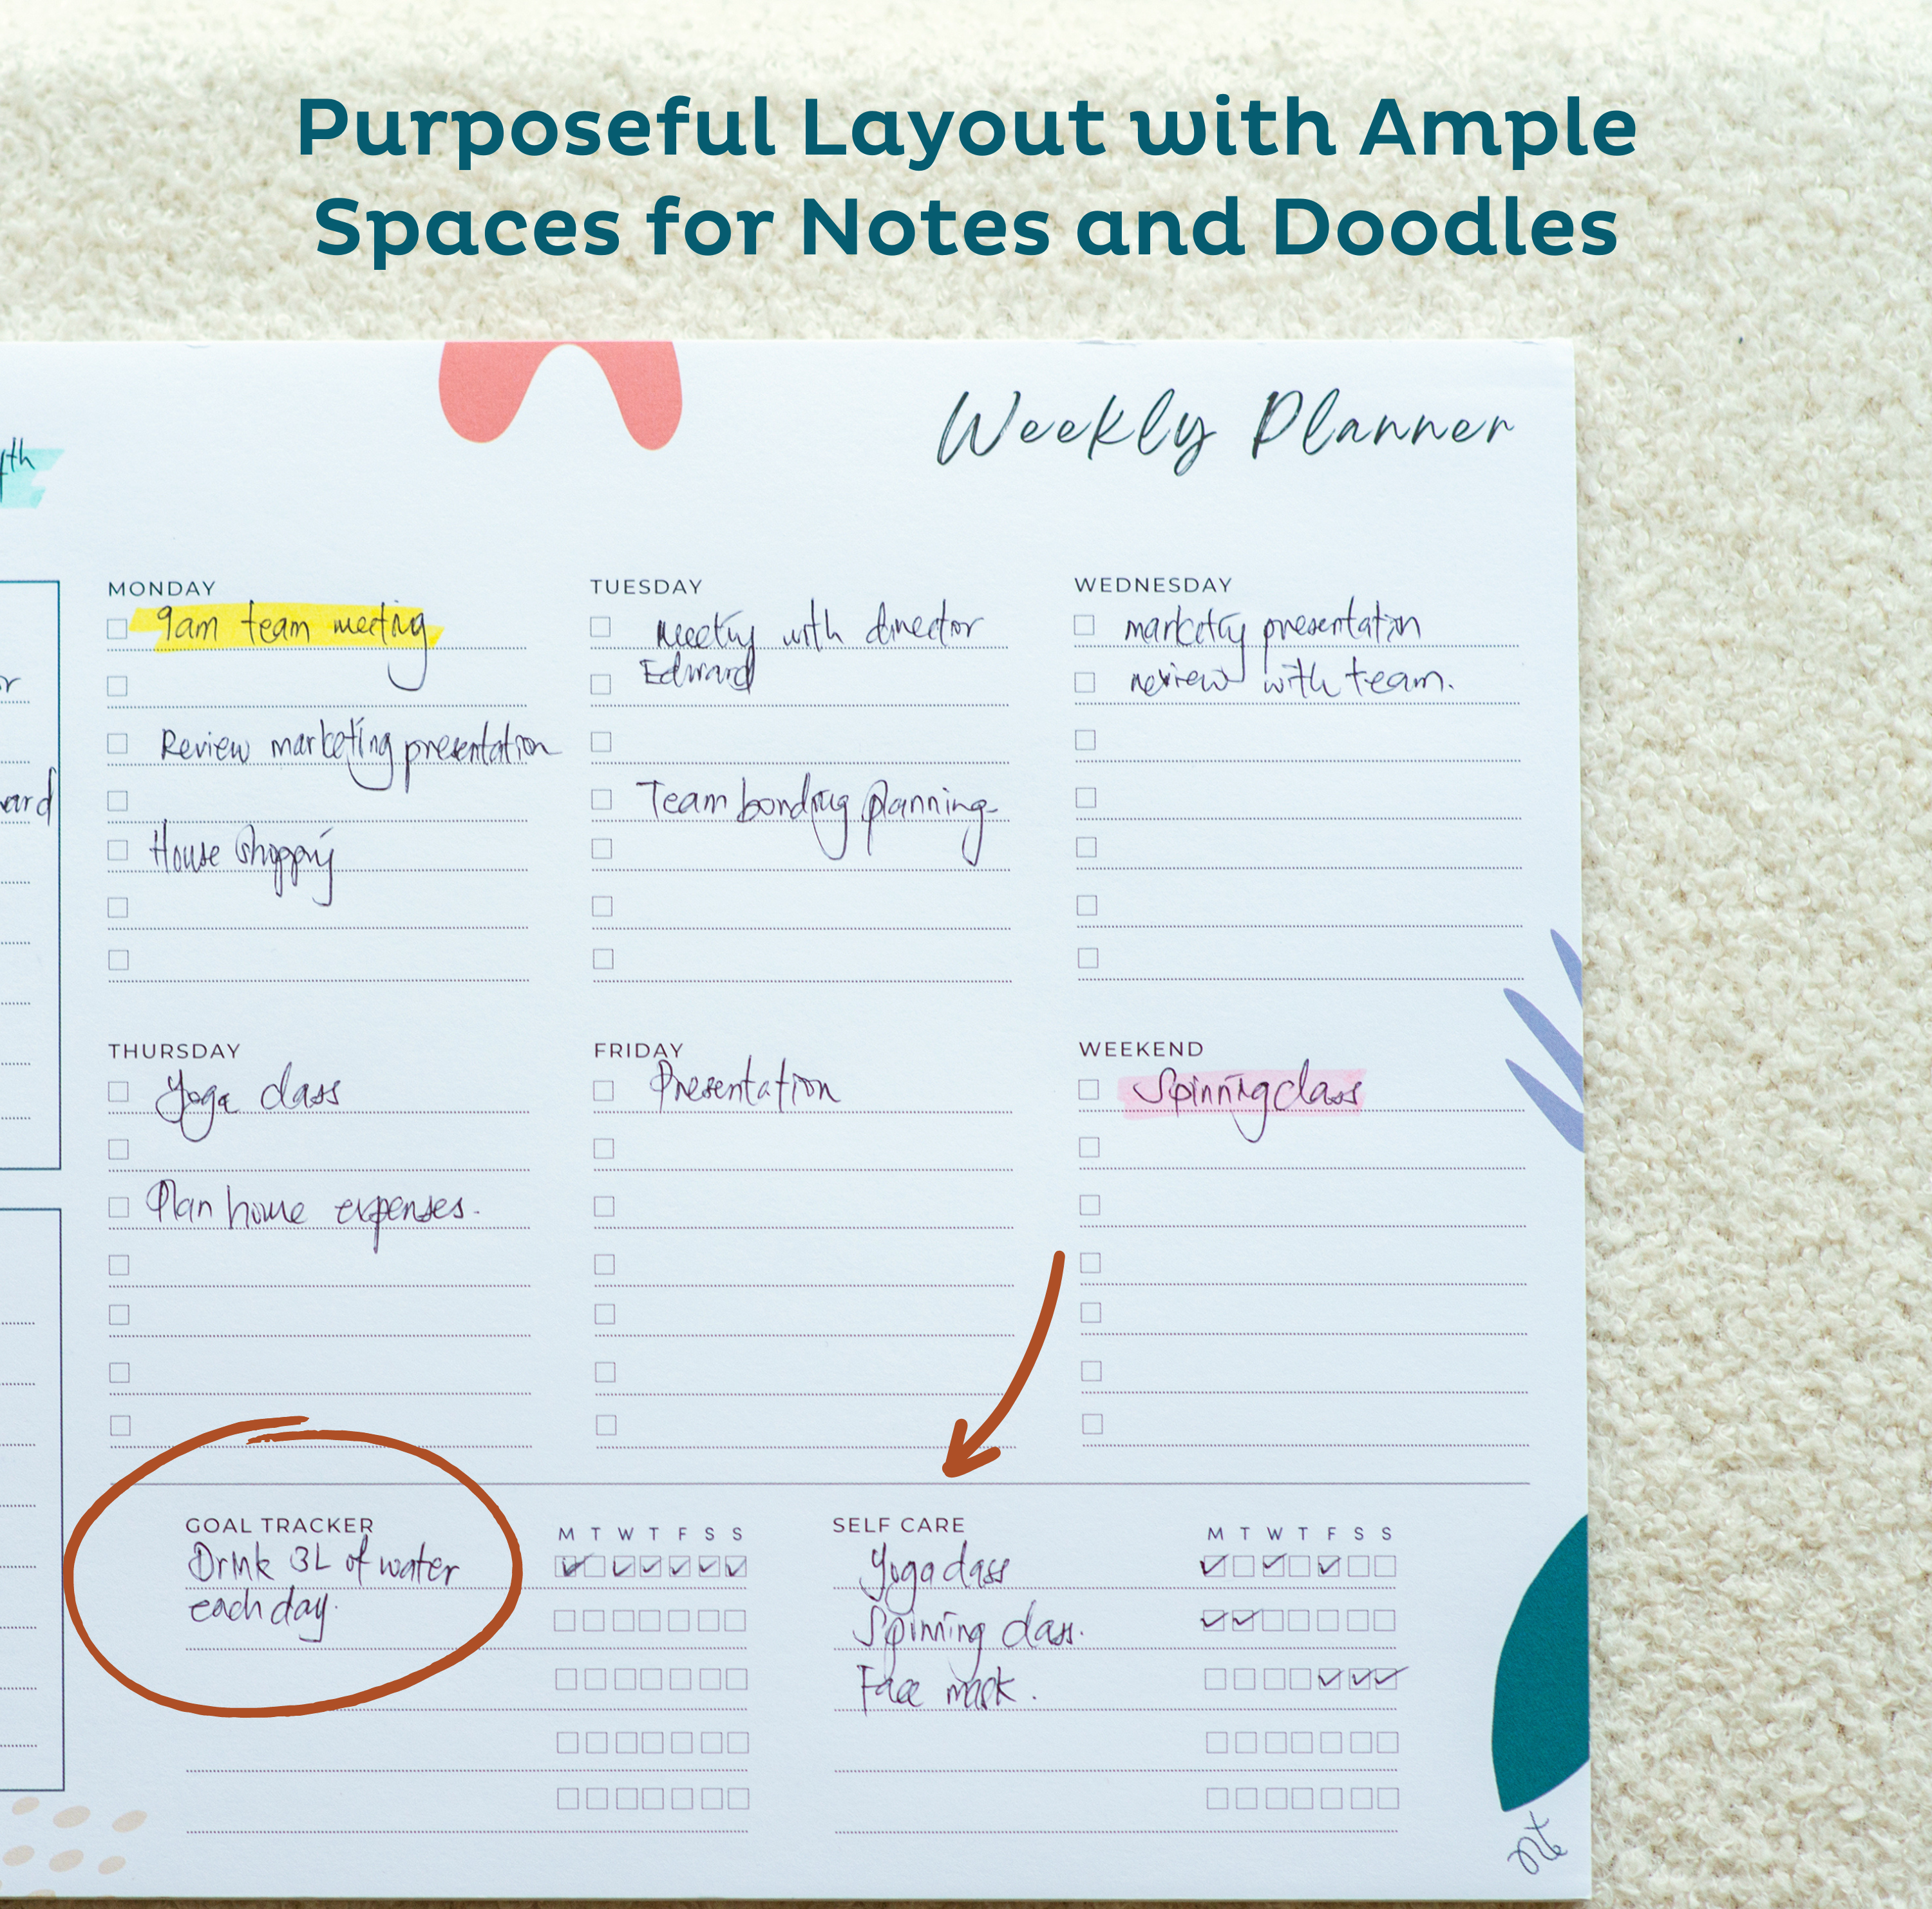 Purposeful Layout with Ample
Spaces for Notes and Doodles
Weekly Planner
th
MONDAY
9am team meeting
Review marketing presentation
House shopping
TUESDAY
Meeting with director
Edward
Team bonding planning
WEDNESDAY
marketing presentation
review with team.
THURSDAY
Yoga class
Plan home expenses.
FRIDAY
Presentation
WEEKEND
Spinning class
GOAL TRACKER
M T W T F S S
Drink 3L of water
each day.
SELF CARE
M T W T F S S
Yoga class
Spinning class.
Face mask.